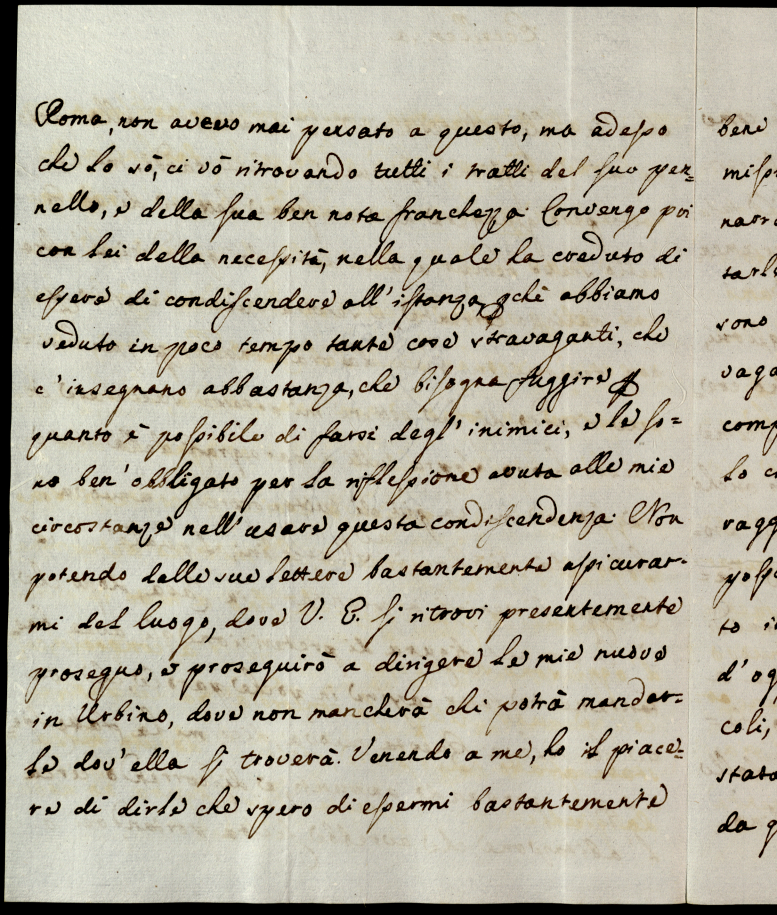 Roma, non avevo mai pensato a questo, ma adesso
che lo sò, ci vò ritrovando tutti i tratti del suo pen=
nello, e della sua ben nota franchezza. Convengo poi
con lei della necessità, nella quale ha creduto di
essere di condiscendere all'istanza, pchè abbiamo
veduto in poco tempo tante cose stravaganti, che
c'insegnano abbastanza, che bisogna fuggire p
quanto è possibile di farsi degl'inimici, e le so=
no ben'obbligato per la riflessione avuta alle mie
circostanze nell'usare questa condiscendenza. Non
potendo dalle sue lettere bastantemente assicurar=
mi del luogo, dove V. E. si ritrovi presentemente
proseguo, e proseguirò a dirigere le mie nuove
in Urbino, dove non mancherà chi potrà mandar=
le dov'ella si troverà. Venendo a me, ho il piace=
re di dirle che spero di essermi bastantemente
bene
miss
narr
tarl
sono
vaga
comp
lo c
ragg
posso
to i
d'og
coli,
stata
da q